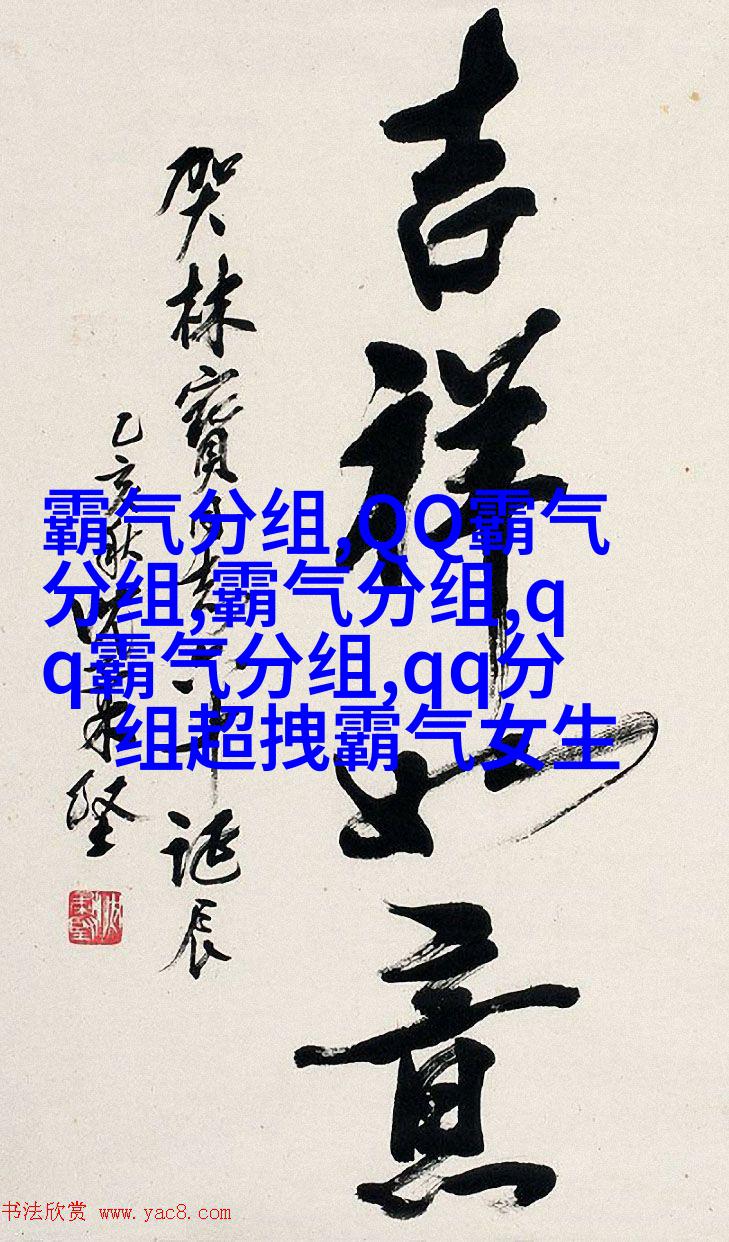 吉祥如意
贺林寶誕辰
乙亥秋
霸气分组,QQ霸气
分组,霸气分组,q
q霸气分组,qq分
组超拽霸气女生
书法欣赏 www.yac8.com